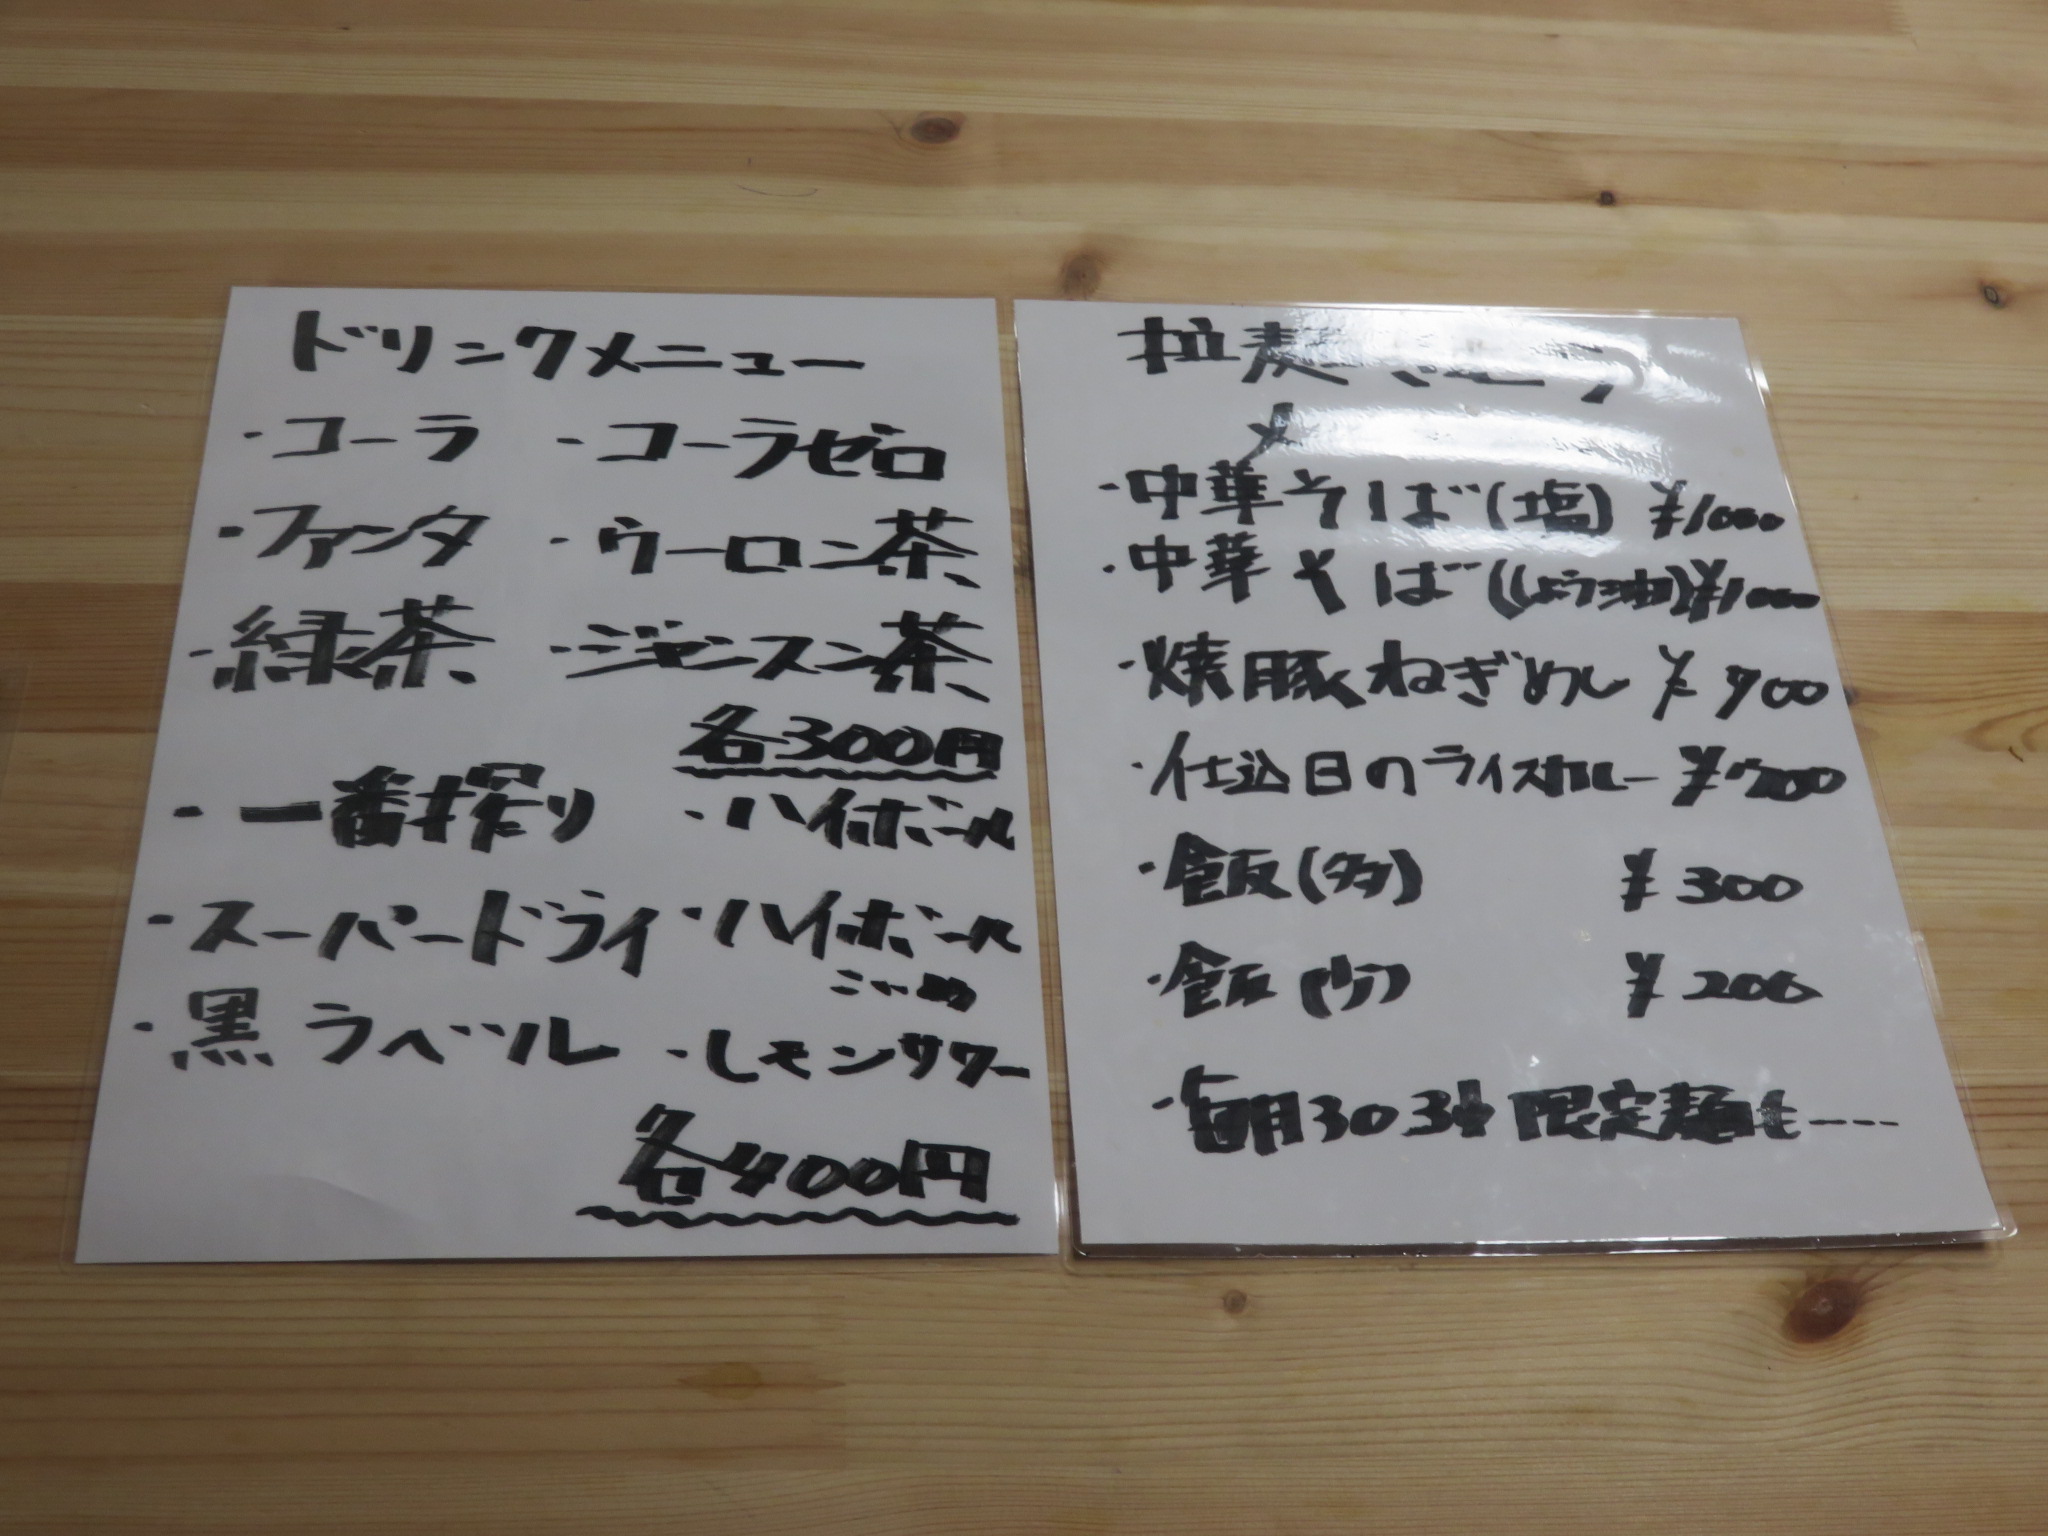 ドリンクメニュー
・コーラ ・コーラゼロ
・ファンタ ・ウーロン茶
・緑茶 ・ジャスミン茶
各300円
・一番搾り ・ハイボール
・スーパードライ ・ハイボール
こいめ
・黒ラベル ・レモンサワー
各400円
拉麺
メ
・中華そば(塩) ¥1000
・中華そば(しょう油) ¥1000
・焼豚ねぎめし ¥700
・仕込日のライスカレー ¥700
・飯(多) ¥300
・飯(少) ¥200
・毎月30 31 限定麺も----